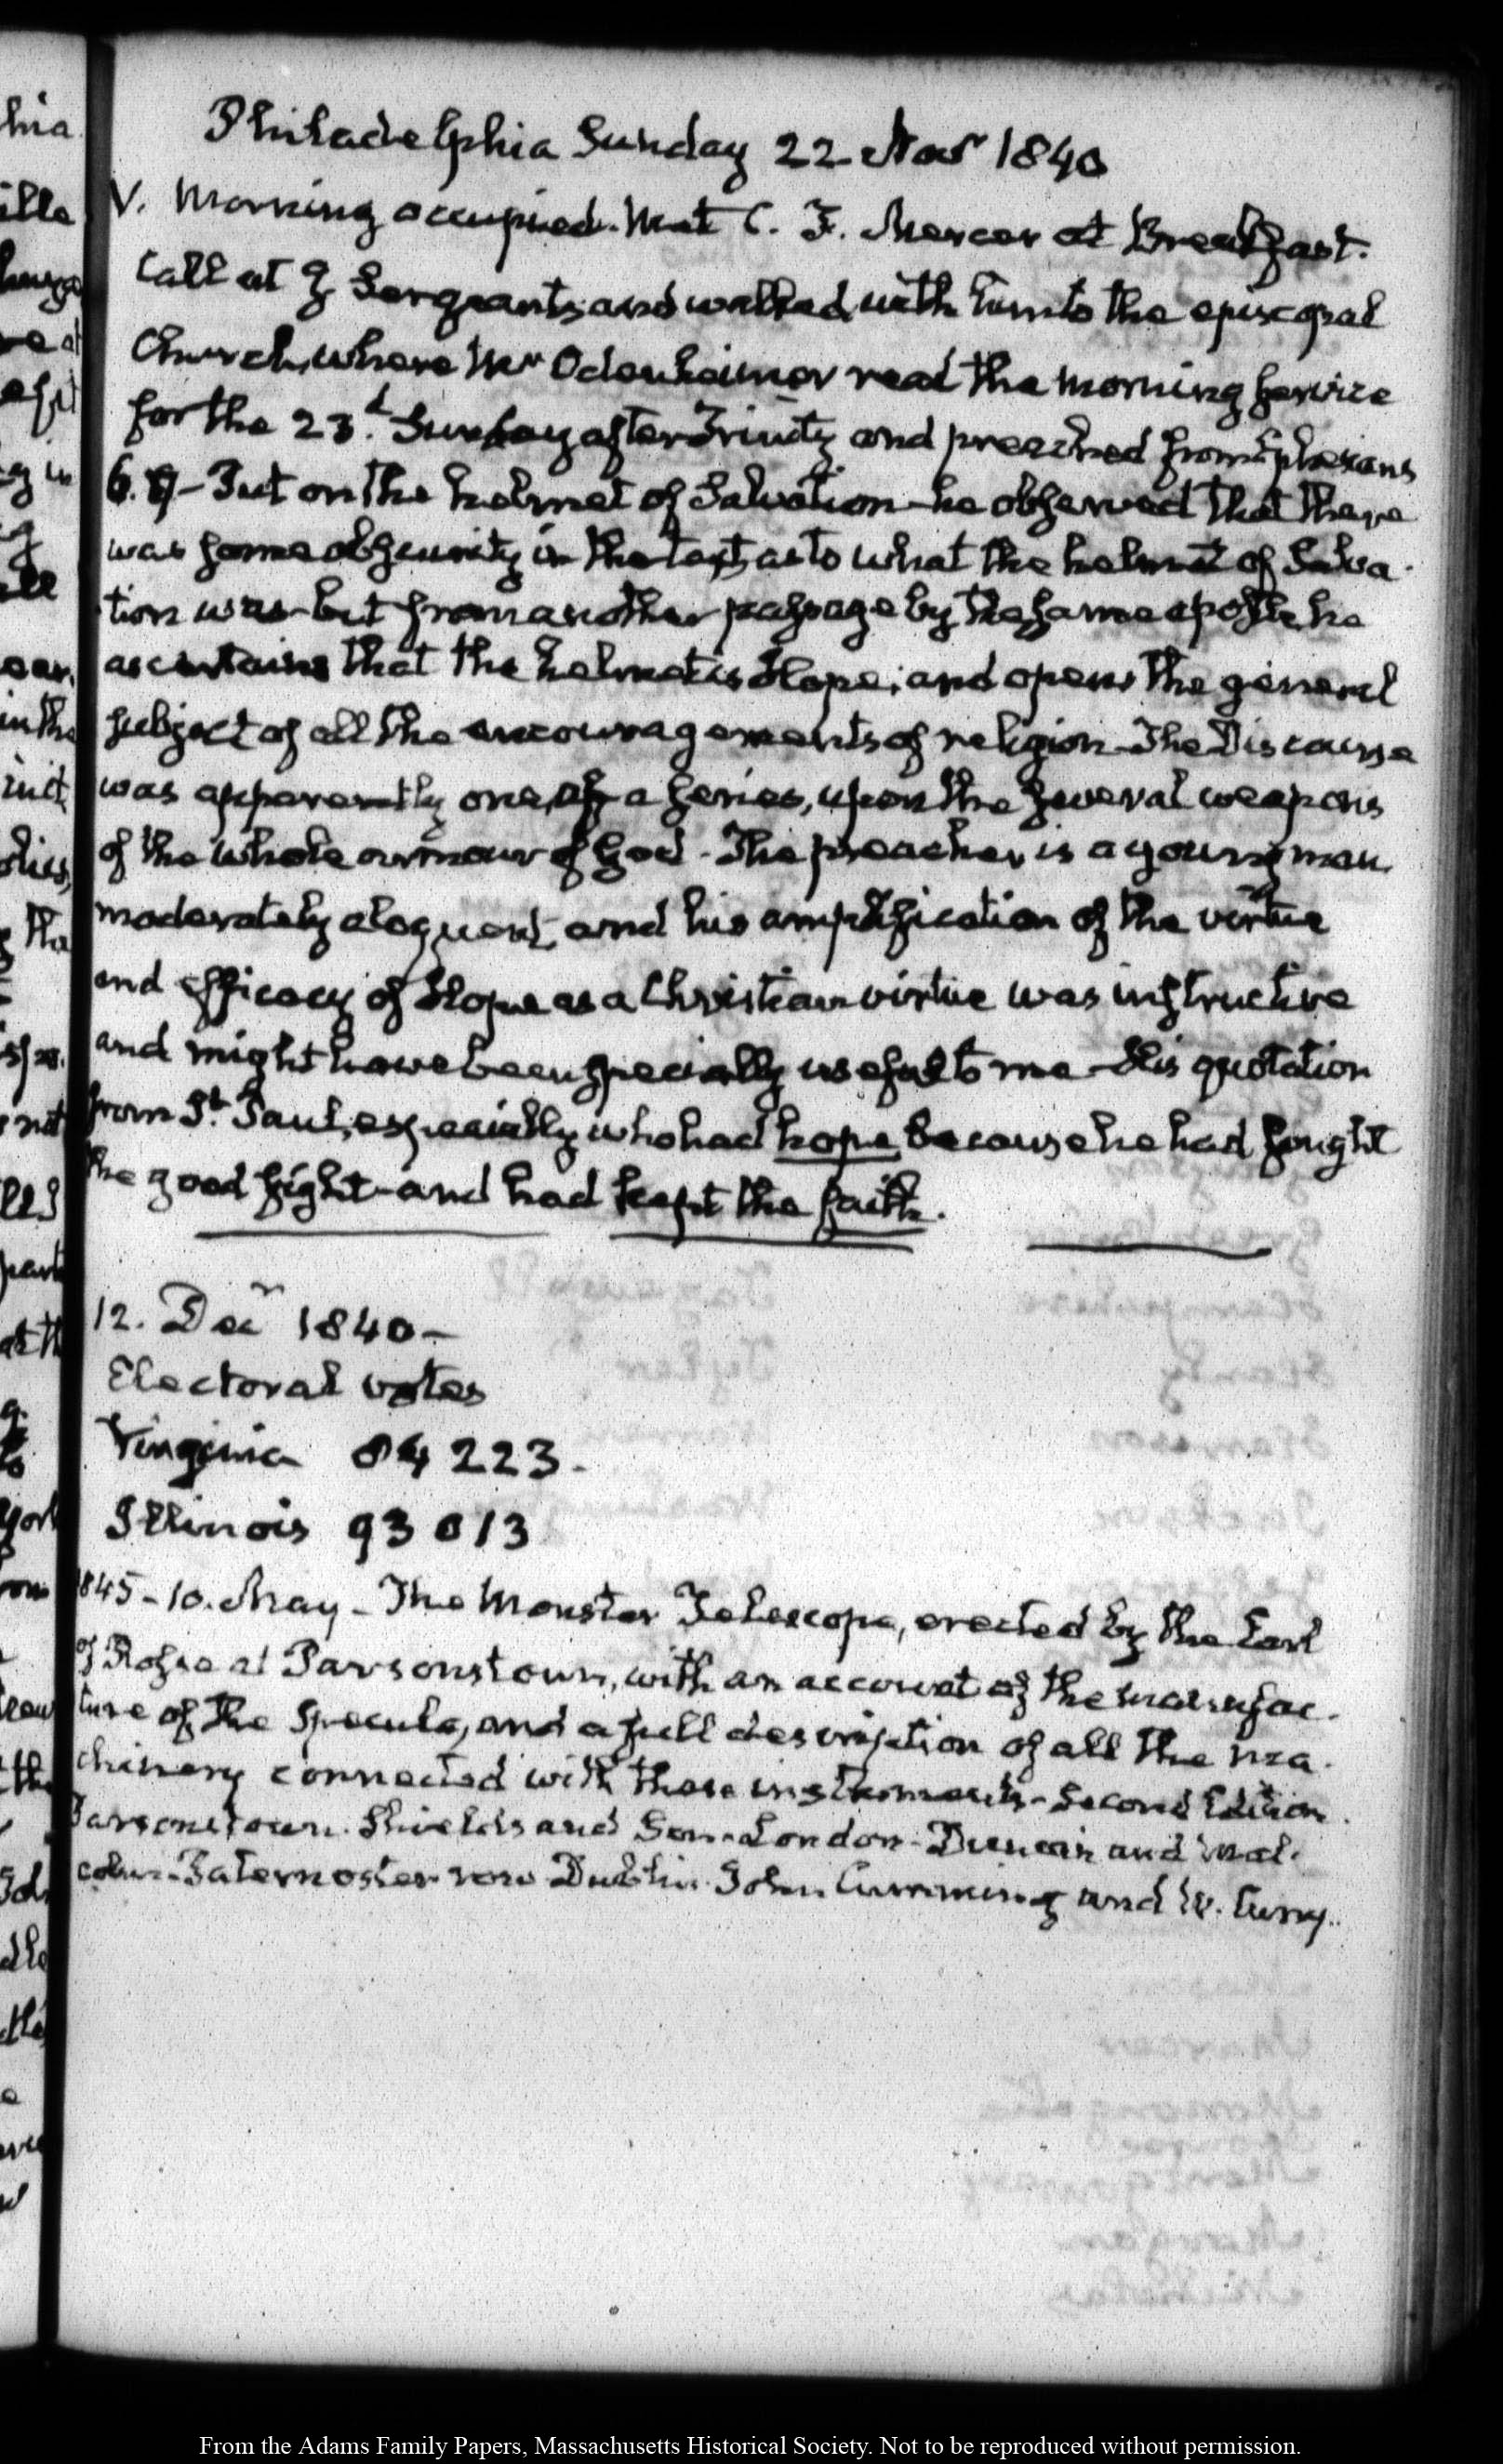 Philadelphia Sunday 22 Nov.r 1840
V. Morning occupied. Met C. F. Mercer at Breakfast.
Call at J Sergeants and walked with him to the episcopal
Church, where Mr Odenheimer read the morning service
for the 23.d Sunday after Trinity and preached from Ephesians
6. 17 - Put on the helmet of Salvation - he observed that there
was some obscurity in the text as to what the helmet of Salva-
tion was - but from another passage by the same apostle he
ascertains that the helmet is Hope; and opens the general
subject of all the encouragements of religion - The Discourse
was apparently one of a series, upon the several weapons
of the whole armour of God - The preacher is a young man
moderately eloquent, and his amplification of the virtue
and efficacy of Hope as a Christian virtue was instructive
and might have been specially useful to me - His quotation
from St. Paul, especially who had hope because he had fought
the good fight - and had kept the faith.
12. Decr 1840 -
Electoral votes
Virginia 84 223.
Illinois 93 013
1845 - 10. May - The Monster Telescope, erected by the Earl
of Rosse at Parsonstown, with an account of the manufac-
ture of the Specula, and a full description of all the ma-
chinery connected with these instruments - Second Edition
Parsonstown. Shields and Son - London - Duncan and Mal-
colm - Paternoster row Dublin. John Cumming and W. Curry.
From the Adams Family Papers, Massachusetts Historical Society. Not to be reproduced without permission.